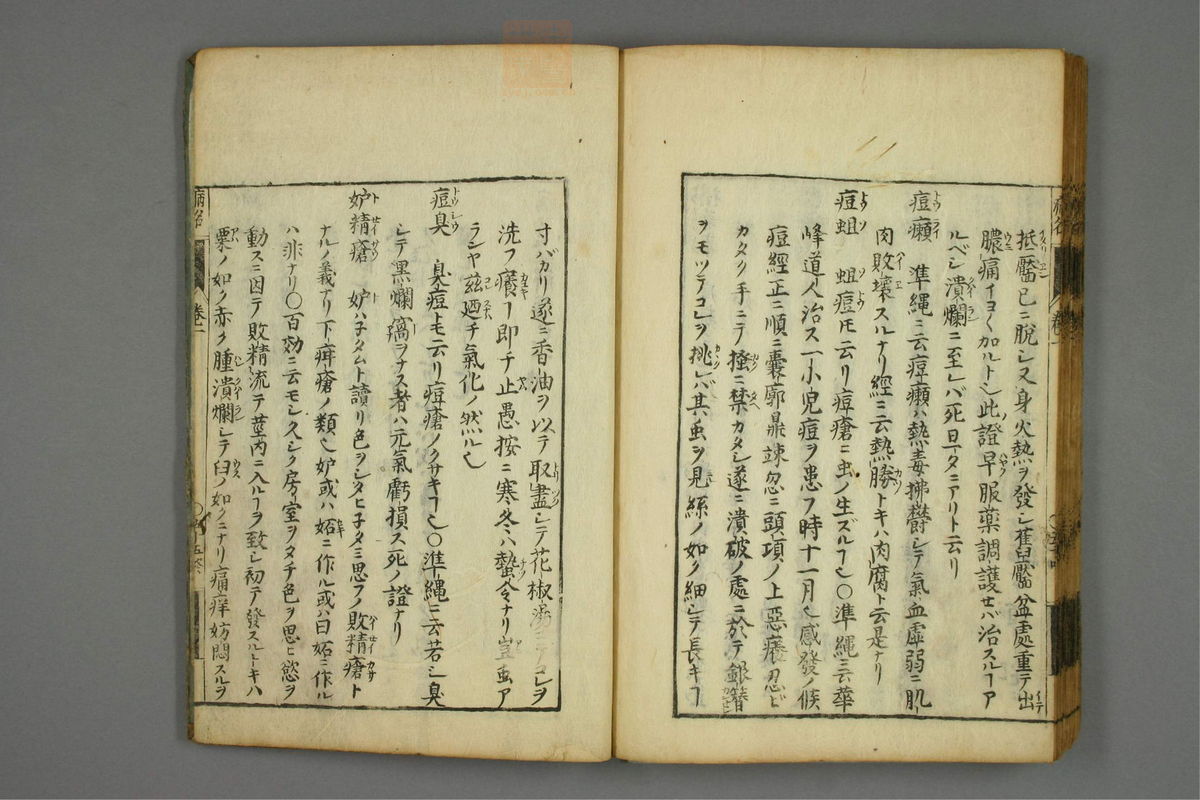 抵靨已ニ脱シ又身火熱ヲ發シ舊靨盆處重テ出
膿痛イヨ〱加ルトシ此證早服薬調護セバ治スルヿア
ルベシ潰爛ニ至レバ死日ヲタニアリト云リ
痘癩 準縄ニ云痘癩ハ熱毒拂欝シテ氣血虚弱ニ肌
肉敗壊スルナリ經ニ云熱勝トキハ肉腐ト云是ナリ
痘蛆 蛆痘モ云リ痘瘡ニ虫ノ生ズルヿ也〇準縄ニ云華
峰道人治ス一小児痘ヲ患フ時十一月也感發ノ候
痘經正ニ順ニ嚢廓鼎竦忽ニ頭項ノ上惡癢忍ビ
カタク手ニテ搔ニ禁カタシ遂ニ潰破ノ處ニ於テ銀簪
ヲモツテコレヲ挑レバ其虫ヲ見絲ノ如ク細シテ長キヿ
寸バカリ遂ニ香油ヲ以テ取盡シテ花椒湯ニテコレヲ
洗フ癢ヿ即チ止愚按ニ寒冬ハ蟄令ナリ豈虫ア
ランヤ茲廼チ氣化ノ然ル也
痘臭 臭痘トモ云リ痘瘡ノクサキヿ也〇準縄ニ云若シ臭
シテ黑爛窩ヲナス者ハ元氣虧損ス死ノ證ナリ
妒精瘡 妒ハ子タムト讀リ色ヲシタヒ子タミ思フノ敗精瘡ト
ナルノ義ナリ下疳瘡ノ類也妒或ハ妬ニ作ル或ハ曰妬ニ作ル
ハ非ナリ〇百効ニ云モシ久シク房室ヲタチ色ヲ思ヒ慾ヲ
動スニ因テ敗精流テ莖内ニ入ルヿヲ致シ初テ發スルトキハ
粟ノ如ク赤ク腫潰爛シテ臼ノ如クニナリ痛痒妨悶スルヲ
病名
巻二